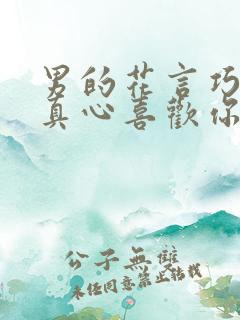 男的花言巧
真心喜歡你
公子無雙
未经同意禁止转载